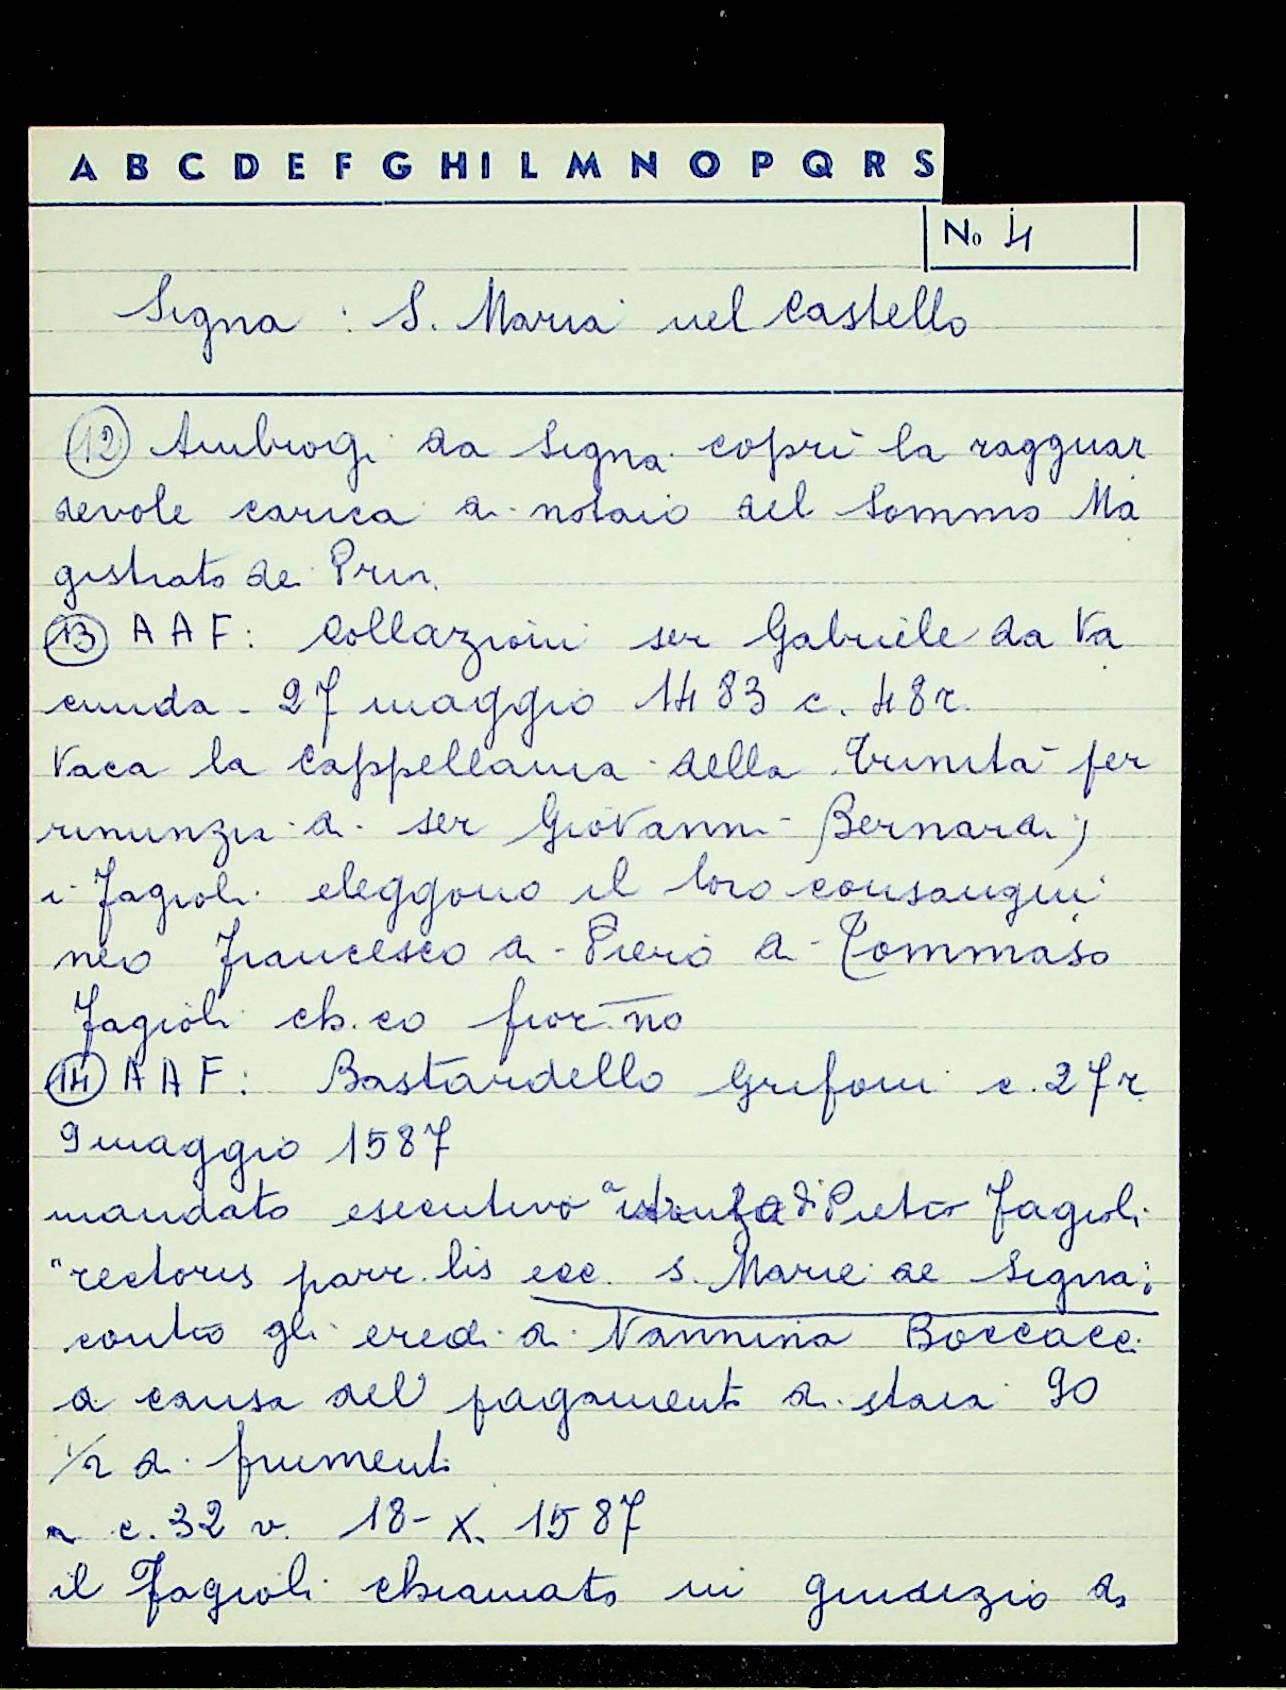 A B C D E F G H I L M N O P Q R S
No 4
Signa : S. Maria nel Castello
(12) Ambrogi da Signa coprì la ragguar
devole carica di notaio del Sommo Ma
gistrato dei Priori.
(13) A A F : Collazioni ser Gabriele da Va
cunda - 27 maggio 1483 c. 48 r.
Vaca la Cappellania della Trinità per
rinunzia di ser Giovanni Bernardi;
i Fagioli eleggono il loro consangui
neo Francesco di Piero di Tommaso
Fagioli ch.co fior.no
(14) A A F : Bastardello Grifoni c. 27 r
9 maggio 1587
mandato esecutivo a istanza di Pietro Fagioli
"rectoris parr.lis ecc. S. Marie de Signa;
contro gli eredi di Nannina Boccacci
a causa del pagamento di staia 90
1/2 di frumento
a c. 32 v. 18 - X. 1587
il Fagioli chiamato in giudizio da